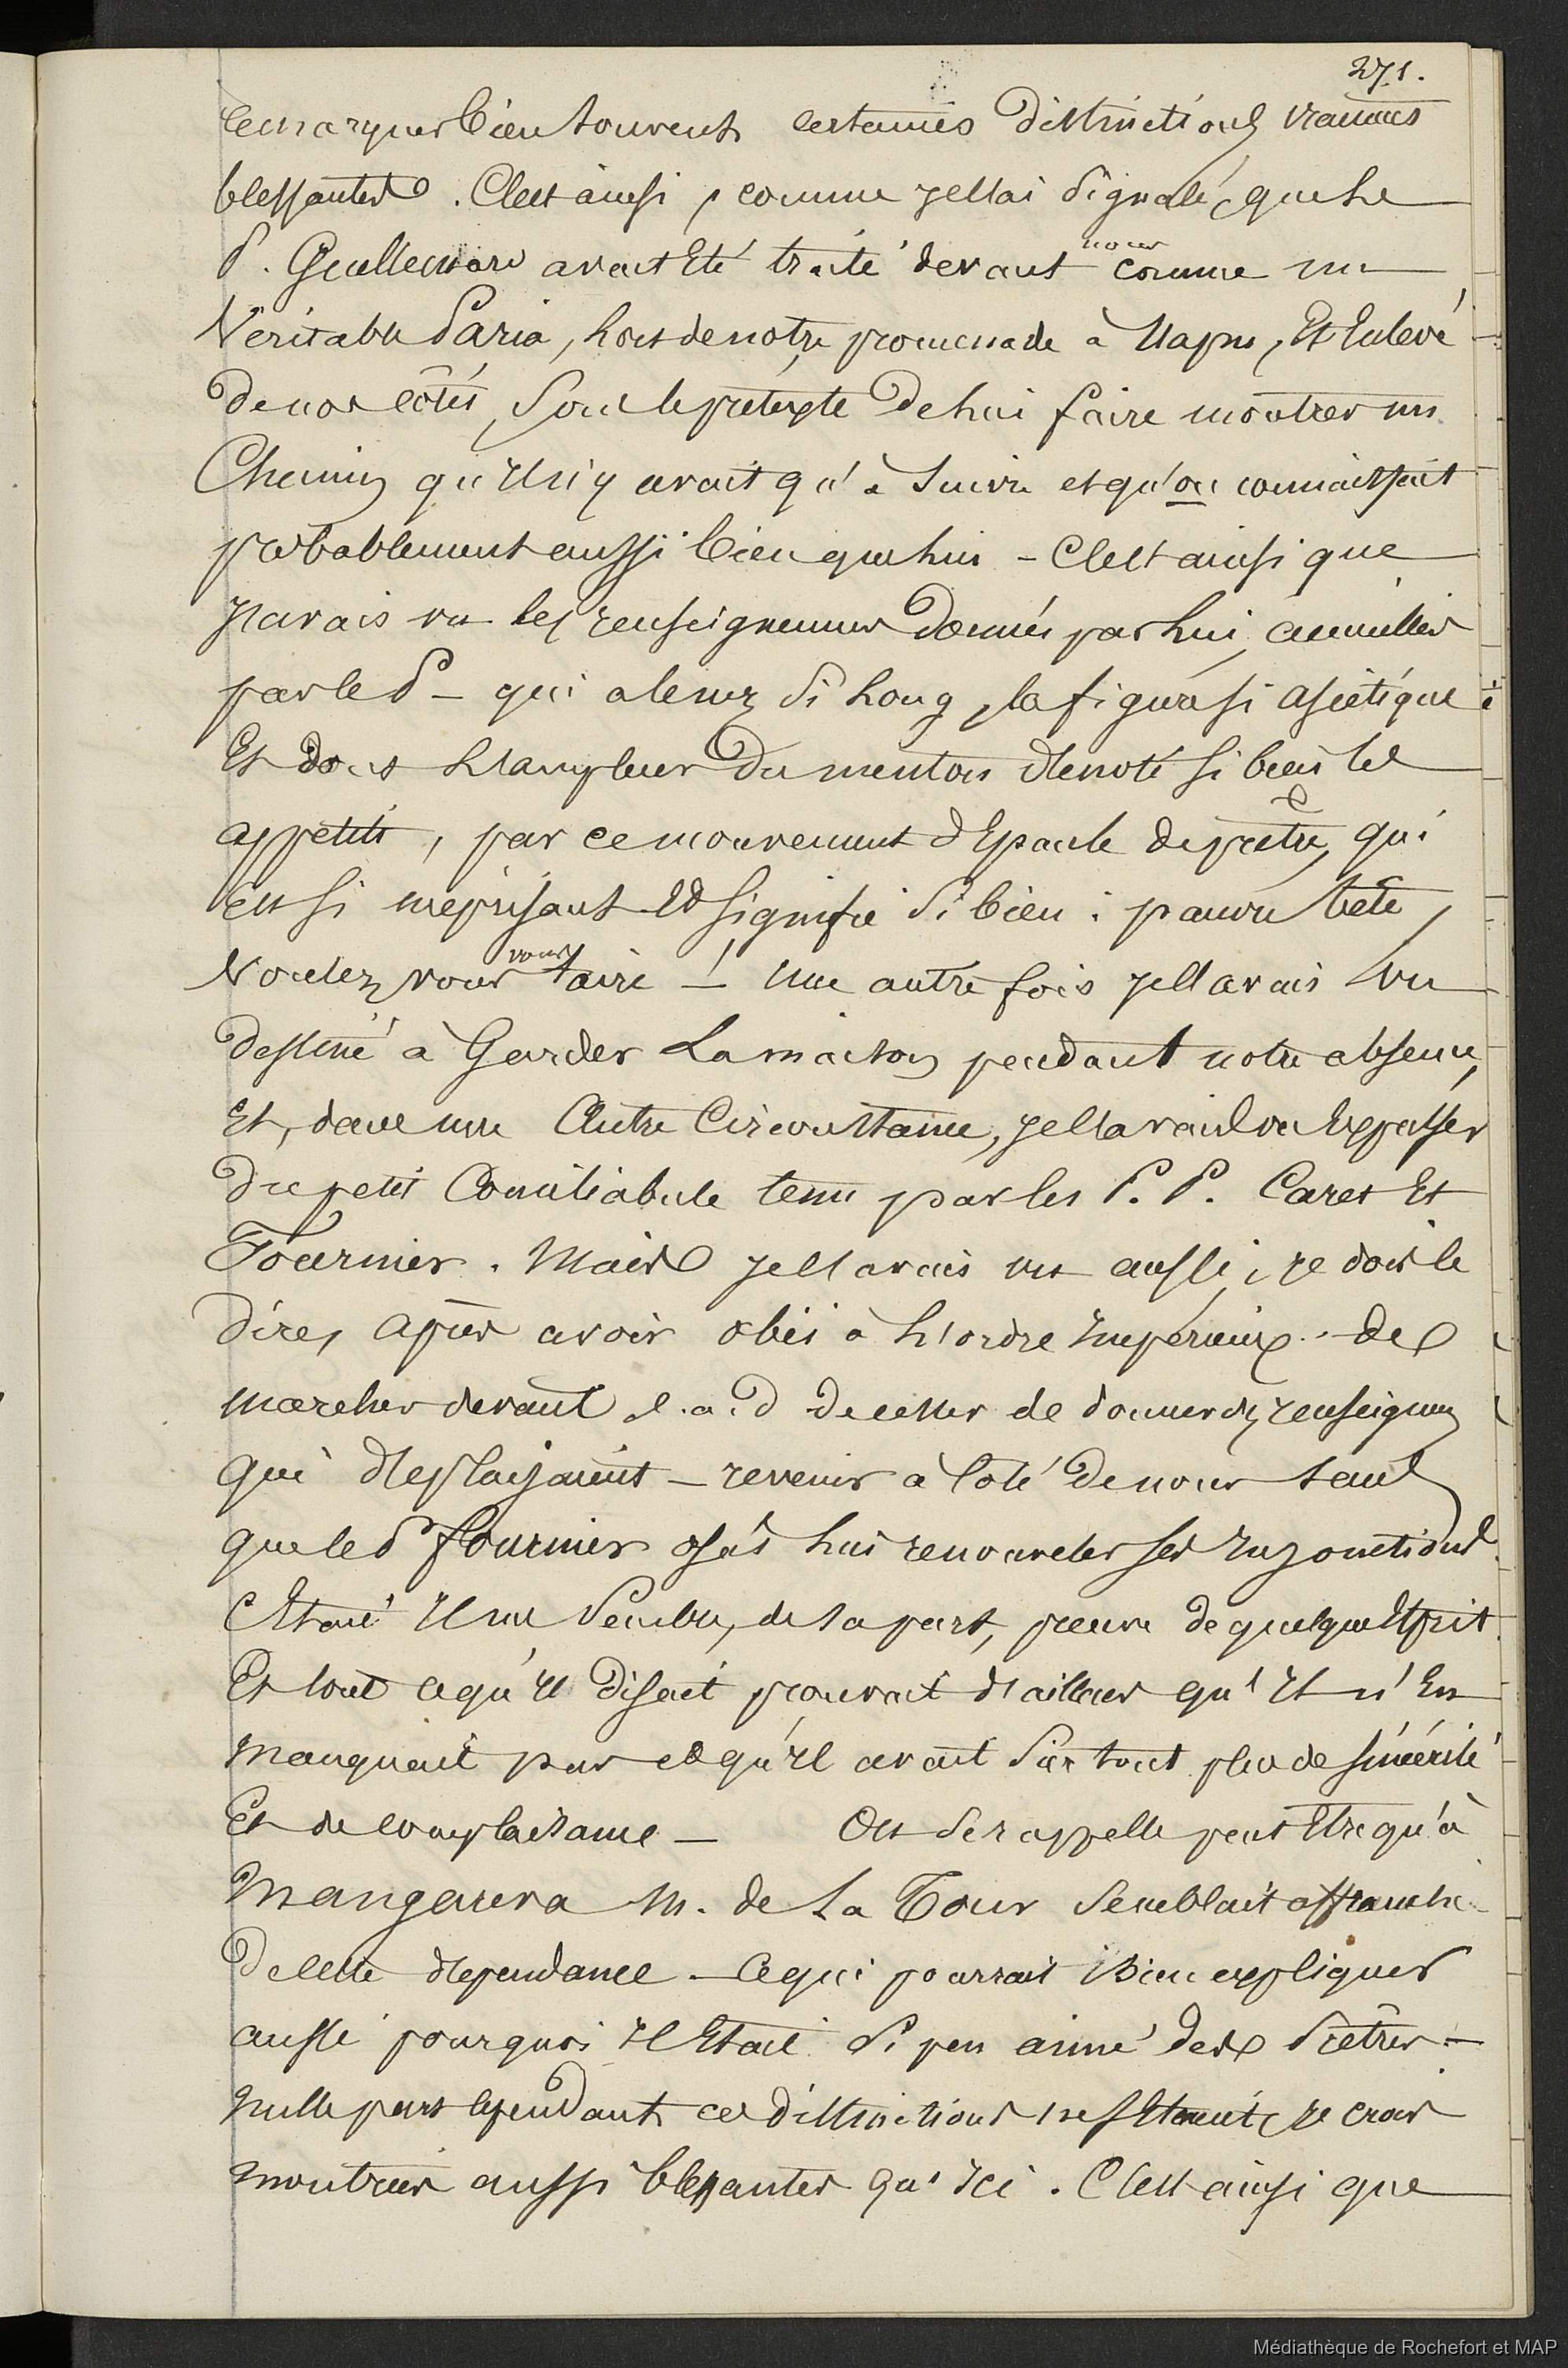 271.
remarquer bien souvent certaines distinctions vraiment
blessantes. C'est ainsi, comme je l'ai signalé, que le
P. Guillemard avait été traité devant nous comme un
véritable Paria, lors de notre promenade à Uapu, et enlevé
de nos côtés, sous le prétexte de lui faire montrer un
chemin qu'il n'y avait qu'à suivre et qu'on connaissait
probablement aussi bien que lui - C'est ainsi que
j'avais vu les renseignemens donnés par lui, accueillis
par le P - qui a le nez si long, la figure si ascétique
et dont l'ampleur du menton dénote si bien les
appetits, par ce mouvement d'épaule de prêtre, qui
est si méprisant et signifie si bien : pauvre bête,
voulez vous vous taire - Une autre fois je l'avais vu
destiné à garder la maison pendant notre absence,
et, dans une autre circonstance, je l'avais vu expulser
du petit Conciliabule tenu par les P. P. Caret et
Fournier. Mais je l'avais vu aussi, je dois le
dire, après avoir obéi à l'ordre impérieux de
marcher devant c. a. d de cesser de donner des renseignem
qui déplaisaient - revenir à côté de nous sans
que le P Fournier osât lui renouveler ses injonctions.
C'était il me semble, de sa part, preuve de quelque esprit
et tout ce qu'il disait prouvait d'ailleurs qu'il n'en
manquait pas et qu'il avait surtout plus de sincérité
et de complaisance - On se rappelle peut être qu'à
Mangareva M. de La Tour semblait affranchi
de cette dépendance - Ce qui pourrait bien expliquer
aussi pourquoi il était si peu aimé des Prêtres -
Nulle part cependant ces distinctions ne s'étaient, je crois
montrées aussi blessantes qu'ici. C'est ainsi que
Médiathèque de Rochefort et MAP